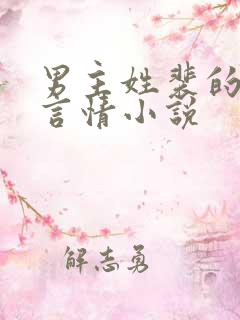 男主姓裴的
言情小说
解志勇